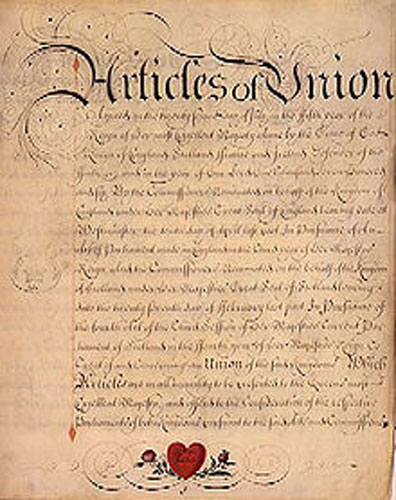 Articles of Union
Agreed on the twenty Second day of July, in the fifth year of the
Reign of Her most Excellent Majesty Anne by the Grace of God
Queen of England Scotland France and Ireland Defender of the
Faith &c and in the year of Our Lord One thousand Seven hundred
and six By the Commissioners Nominated on behalf of the Kingdom of
England under Her Majesties Great Seal of England bearing date at
Westminster the tenth day of April last past In Pursuance of an
Act of Parliament made in England in the third year of Her Majesties
Reign and the Commissioners Nominated on the behalf of the Kingdom
of Scotland under Her Majesties Great Seal of Scotland bearing
date the twenty seventh day of February last past In Pursuance of
the fourth Act of the third Session of Her Majesties Current Par
liament of Scotland in the year of Her Majesties Reign to
Treat of and Concerning an Union of the said Kingdoms Which
Articles are in all humility to be presented to the Queens most
Excellent Majesty and offered to the Consideration of the respective
Parliaments of both Kingdoms pursuant to the said Acts and Commissions